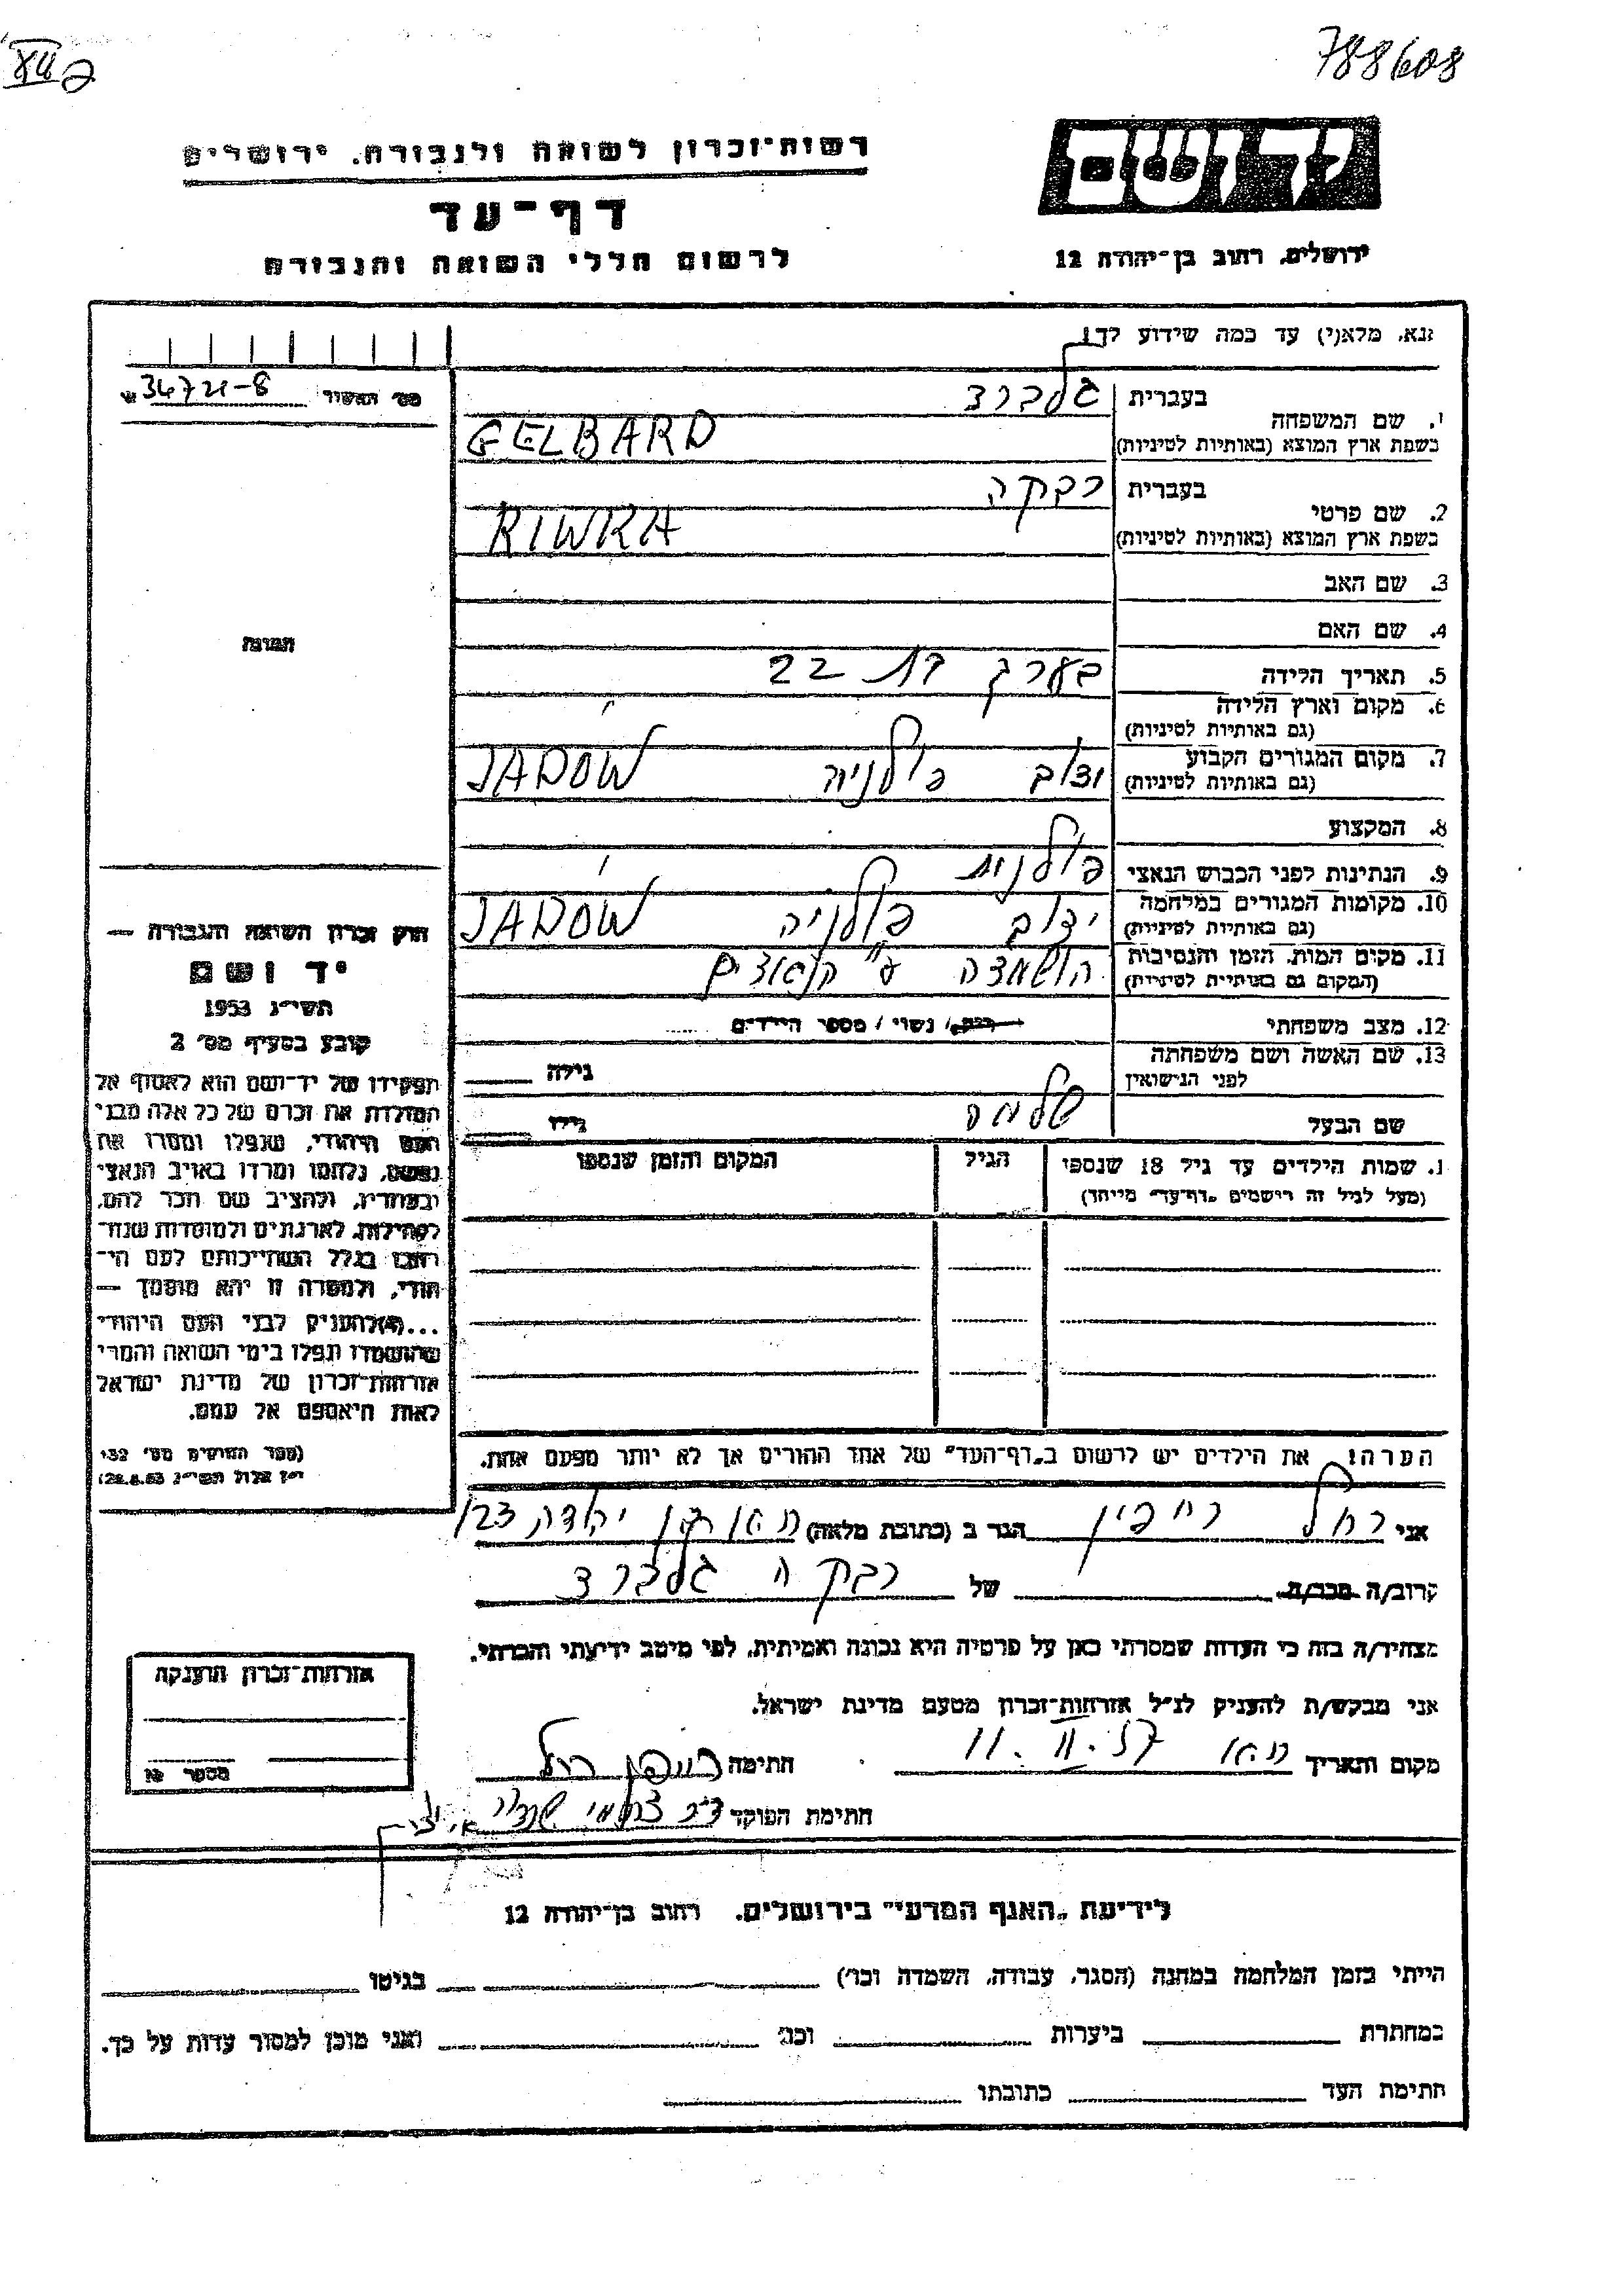 788608
רשות־זכרון לשואה ולגבורה. ירושלים
דף־עד
לרשום חללי השואה והגבורה
יד ושם
ירושלים, רחוב בן־יהודה 12
נא, מלא(י) עד כמה שידוע לך!
מס׳ האשור 34721-8
1. שם המשפחה
בעברית גלברד
בשפת ארץ המוצא (באותיות לטיניות) GELBARD
2. שם פרטי
בעברית רבקה
בשפת ארץ המוצא (באותיות לטיניות) RIWKA
3. שם האב
4. שם האם
תמונה
5. תאריך הלידה בערך בת 22
6. מקום וארץ הלידה
(גם באותיות לטיניות)
7. מקום המגורים הקבוע
(גם באותיות לטיניות) פולניה JADOW
8. המקצוע
9. הנתינות לפני הכבוש הנאצי פולנית
10. מקומות המגורים במלחמה
(גם באותיות לטיניות) ידוב פולניה JADOW
11. מקום המות, הזמן והנסיבות
(המקום גם באותיות לטיניות) הושמדה ע״ הנאצים
12. מצב משפחתי רווק/ נשוי / מספר הילדים
13. שם האשה ושם משפחתה
לפני הנישואין
גילה
שם הבעל שלמה
גילו
חוק זכרון השואה והגבורה —
יד ושם
תשי״ג 1953
קובע בסעיף מס׳ 2
תפקידו של יד־ושם הוא לאסוף אל
המולדת את זכרם של כל אלה מבני
העם היהודי, שנפלו ומסרו את
נפשם, נלחמו ומרדו באויב הנאצי
ובעוזריו, ולהציב שם וזכר להם,
לקהילות, לארגונים ולמוסדות שנח־
רבו בגלל השתייכותם לעם הי־
הודי, ולמטרה זו יהא מוסמך —
...(4)להעניק לבני העם היהודי
שהושמדו ונפלו בימי השואה והמרי
אזרחות־זכרון של מדינת ישראל
לאות היאספם אל עמם.
(ספר החוקים מס׳ 132
י״ז אלול תשי״ג 28.8.53)
1. שמות הילדים עד גיל 18 שנספו
(מעל לגיל זה רישמים „דף־עד״ מייחד)
הגיל
המקום והזמן שנספו
הערה! את הילדים יש לרשום ב„דף־העד״ של אחד ההורים אך לא יותר מפעם אחת.
אני רחל הגר ב (כתובת מלאה)
קרוב/ה מכר/ה של רבקה גלברד
מצהיר/ה בזה כי העדות שמסרתי כאן על פרטיה היא נכונה ואמיתית, לפי מיטב ידיעתי והכרתי.
אני מבקש/ת להעניק לנ״ל אזרחות־זכרון מטעם מדינת ישראל.
מקום ותאריך 11.II.57 חתימה
חתימת הפוקד
אזרחות־זכרון הוענקה
מספר
לידיעת „האגף המדעי״ בירושלים. רחוב בן־יהודה 12
הייתי בזמן המלחמה במחנה (הסגר, עבודה, השמדה וכו׳) בגיטו
במחתרת ביערות וכו׳ ואני מוכן למסור עדות על כך.
חתימת העד כתובתו